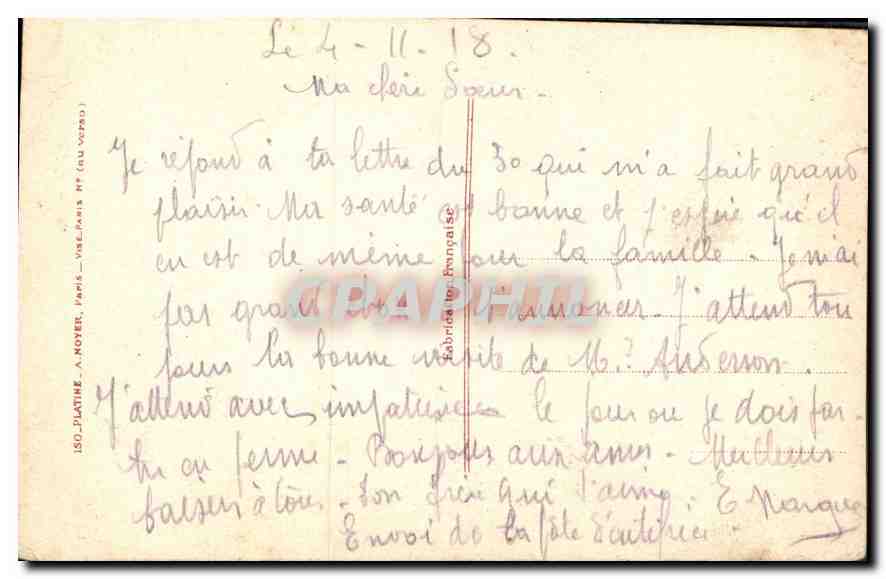 Le 4-11-18.
Ma chère Soeur -
Je répond à ta lettre du 30 qui m'a fait grand
plaisir. Ma santé est bonne et j'espère qu'il
en est de même pour la famille - Je n'ai
pas grand chose à t'annoncer. J'attend tou
jours la bonne visite de M. Anderson.
J'attend avec impatience le jour ou je dois par-
tir en perme - Bonjours aux amis - Meilleurs
baisers à tous - Ton frère qui t'aime. E
Envoi de la
Fabrication Française
ISO_PLATINE_ A. NOYER, PARIS _ VISÉ PARIS N° (AU VERSO)
CPAPHIL